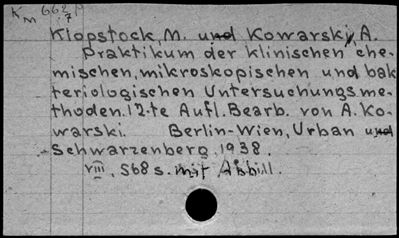 Km 662/7
Klopstock, M. und Kowarski, A.
Praktikum der klinischen che-
mischen, mikroskopischen und bak
teriologischen Untersuchungsme-
thoden. 12-te Aufl. Bearb. von A. Ko-
warski. Berlin-Wien, Urban und
Schwarzenberg, 1938.
VIII, 568 s. mit Abbill.